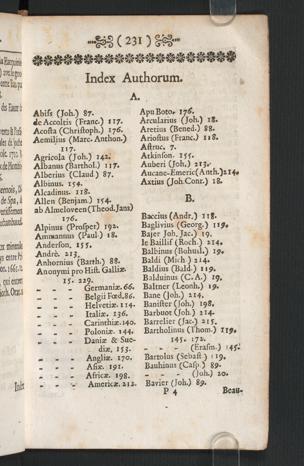 ( 231 )
Index Authorum.
A.
Abiss (Joh.) 87.
de Accoltis (Franc.) 117.
Acosta (Christoph.) 176.
Aemilius (Marc. Anthon.)
117.
Agricola (Joh.) 142.
Albanus (Barthol.) 117.
Alberius (Claud.) 87.
Albinus. 154.
Alcadinus. 118.
Allen (Benjam.) 154.
ab Almeloveen (Theod. Jans)
176.
Alpinus (Prosper) 192.
Ammannus (Paul.) 18.
Anderson. 155.
Andrè. 213.
Anhornius (Barth.) 88.
Anonymi pro Hist. Galliæ.
15. 229.
- - - Germaniæ. 66.
- - - Belgii Fœd. 86.
- - - Helvetiæ. 114.
- - - Italiæ. 136.
- - - Carinthiæ. 140.
- - - Poloniæ. 144.
- - - Daniæ & Sue-
diæ. 153.
- - - Angliæ. 170.
- - - Asiæ. 191.
- - - Africæ. 198.
- - - Americæ. 212.
Apu Boto. 176.
Arcularius (Joh.) 18.
Aretius (Bened.) 88.
Ariostus (Franc.) 118.
Astruc. 7.
Atkinson. 155.
Auberi (Joh.) 213.
Aucane-Emeric (Anth.) 214.
Axtius (Joh. Conr.) 18.
B.
Baccius (Andr.) 118.
Baglivius (Georg.) 119.
Bajer Joh. Jac.) 19.
le Baillif (Roch.) 214.
Balbinus (Bohusl.) 19.
Baldi (Mich) 214.
Baldius (Bald.) 119.
Balduinus (C. A.) 19.
Baltner (Leonh.) 19.
Bane (Joh.) 214.
Banister (Joh.) 198.
Barbuot (Joh.) 214.
Barrelier (Jac.) 215.
Bartholinus (Thom.) 119.
145. 172.
- - - (Erasm.) 145.
Bartolus (Sebast.) 119.
Bauhinus (Casp.) 89.
- - - (Joh.) 20.
Bavier (Joh.) 89.
P 4 Beau-
Index